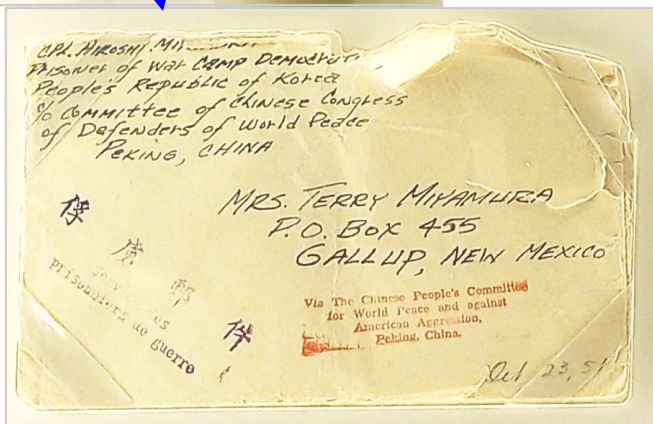 CPL. HIROSHI
Prisoner of War Camp
People's Republic of Korea
c/o Committee of Chinese Congress
of Defenders of World Peace
PEKING, CHINA
MRS. TERRY MIYAMURA
P.O. BOX 455
GALLUP, NEW MEXICO
俘
虜
郵
件
prisonniers de guerre
Via The Chinese People's Committee
for World Peace and against
American Aggression,
Peking, China.
Oct 23, 51